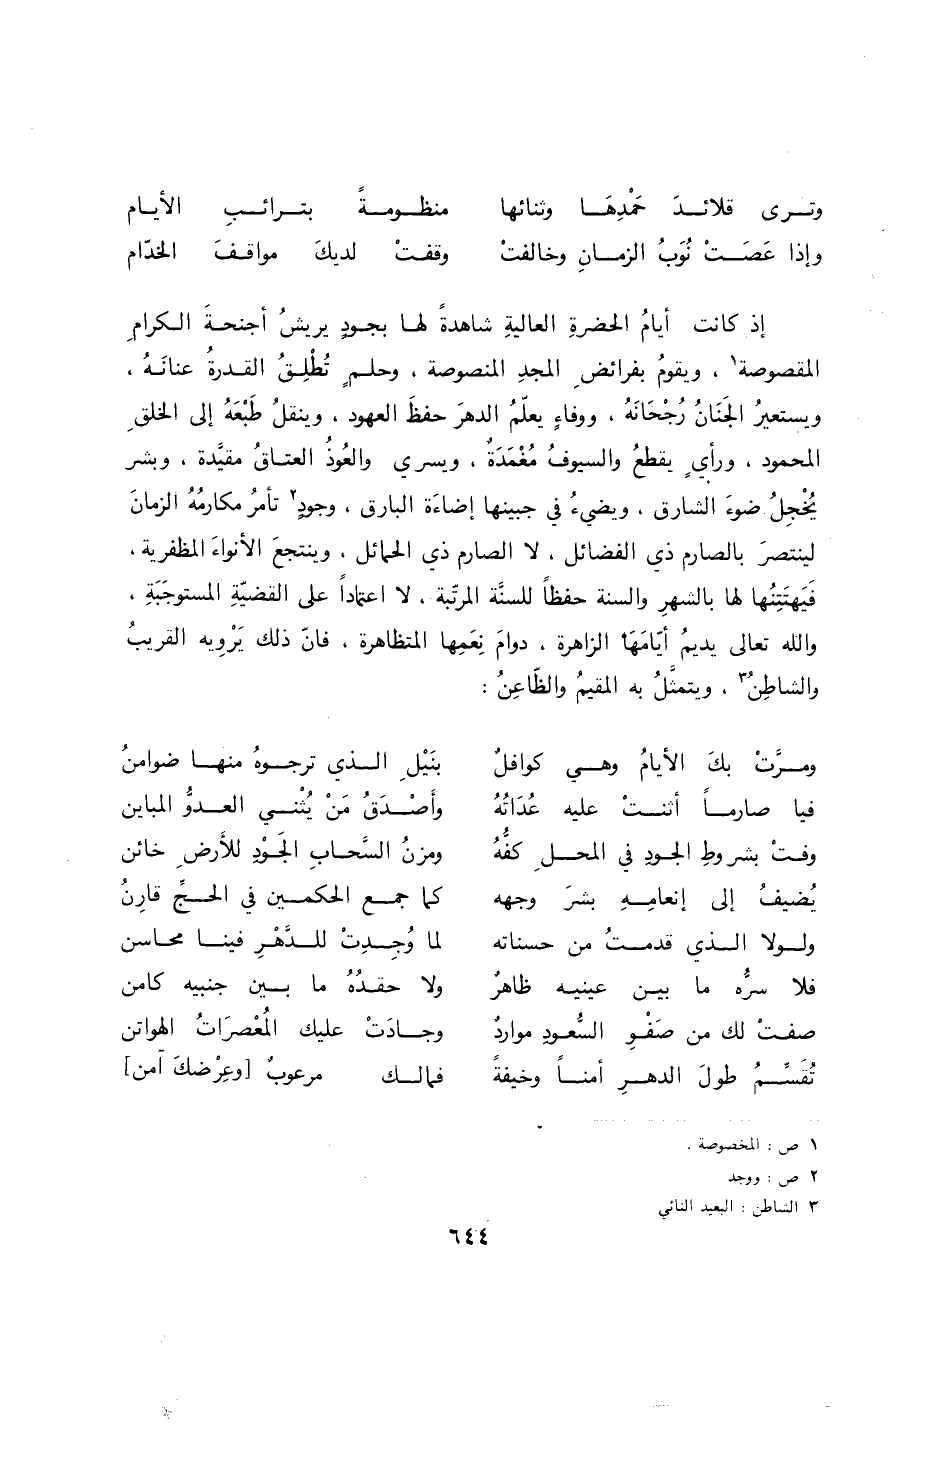 وتــرى قلائــدَ حَمْدِهَــا وثنائها منظــومــةً بتــرائــبِ الأيــام
وإذا عَصَــتْ نُوَبُ الزمــانِ وخالفتْ وقفــتْ لديكَ مواقــفَ الخدّام
إذ كانت أيامُ الحضرةِ العاليةِ شاهدةً لها بجودٍ يريشُ أجنحةَ الكرامِ
المقصوصة١ ، ويقومُ بفرائضِ المجدِ المنصوصة ، وحلمٍ تُطْلِقُ القدرةُ عنانَهُ ،
ويستعيرُ الجَنَانُ رُجْحَانَهُ ، ووفاءٍ يعلّمُ الدهرَ حفظَ العهود ، وينقلُ طَبْعَهُ إلى الخلقِ
المحمود ، ورأيٍ يقطعُ والسيوفُ مُغْمَدَةٌ ، ويسري والعُوذُ العتاقُ مقيَّدة ، وبشر
يُخْجِلُ ضوءَ الشارق ، ويضيءُ في جبينها إضاءَة البارق ، وجودٍ٢ تأمرُ مكارمُهُ الزمانَ
لينتصرَ بالصارم ذي الفضائل ، لا الصارم ذي الحمائل ، وينتجعَ الأنواءَ المظفرية ،
فَيُهَنِّئُها لها بالشهرِ والسنة حفظاً للسنَّة المرتّبة ، لا اعتماداً على القضيّةِ المستوجَبَةِ ،
والله تعالى يديمُ أيّامَهَا الزاهرة ، دوامَ نِعَمِها المتظاهرة ، فانّ ذلك يَرْويه القريبُ
والشاطِنُ٣ ، ويتمثَّلُ به المقيمُ والظّاعِنُ :
ومــرَّتْ بكَ الأيامُ وهــي كوافلُ بنَيْلِ الــذي ترجــوهُ منهــا ضوامنُ
فيا صارمــاً أثنــتْ عليه عُدَاتُهُ وأصْــدَقُ مَنْ يُثْنــي العــدوُّ المباين
وفتْ بشروطِ الجــود في المحــلِ كفُّهُ ومزنُ السَّحابِ الجَوْدِ للأرضِ خائن
يُضيفُ إلى إنعامِــهِ بشرَ وجهه كما جمــع الحكمــين في الحــجِّ قارنُ
ولــولا الــذي قدمــتُ من حسناته لما وُجــدتْ للــدَّهْرِ فينــا محاسن
فلا سرُّه ما بيــن عينيــه ظاهرُ ولا حقــدُهُ ما بــين جنبيه كامن
صفــتْ لك من صَفْوِ السُّعودِ مواردُ وجــادَتْ عليك المُعْصرَاتُ الهواتن
تُقَسِّــمُ طولَ الدهــرِ أمنــاً وخيفةً فمالــك مرعوبُ [وعِرْضكَ آمن]
١ ص : المخصوصة .
٢ ص : ووجد
٣ الشاطن : البعيد النائي
٦٤٤